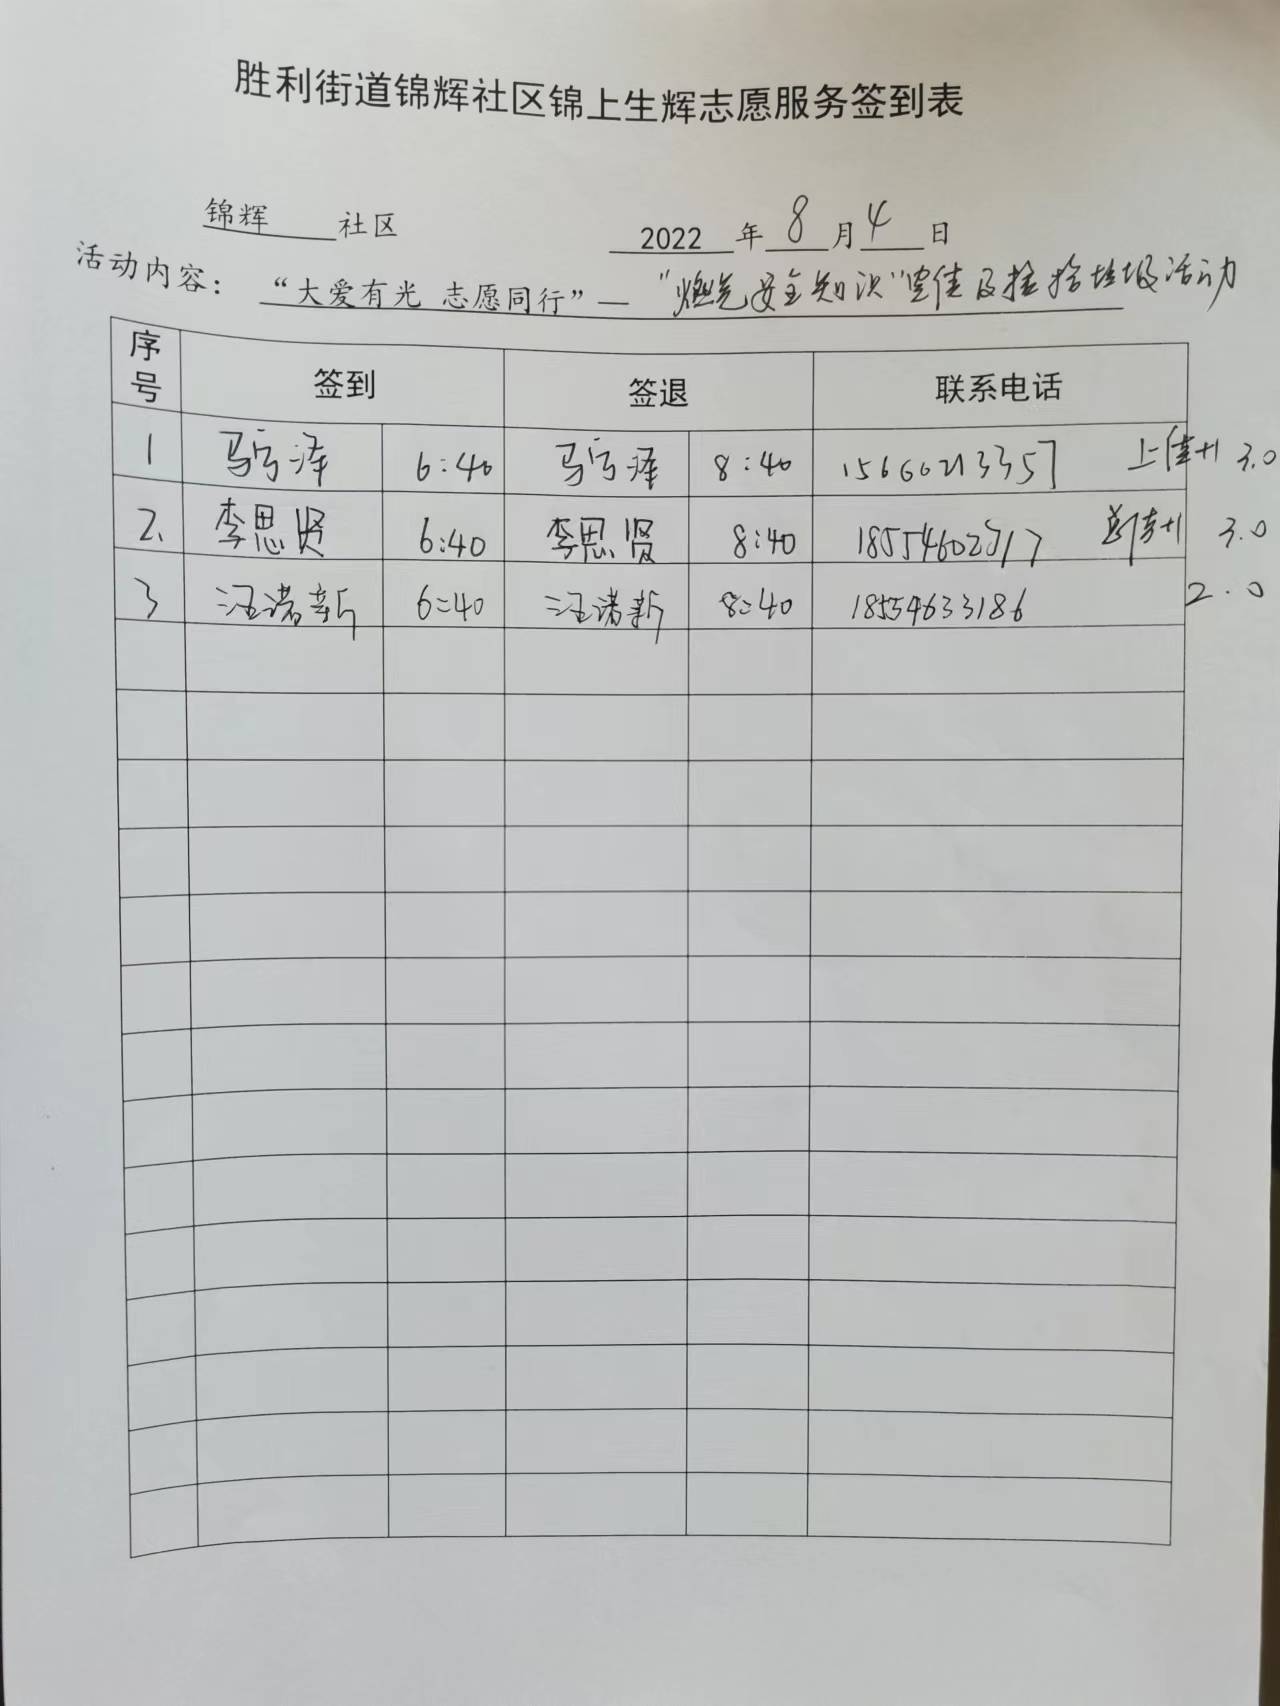 胜利街道锦辉社区锦上生辉志愿服务签到表
锦辉 社区 2022 年 8 月 4 日
活动内容：“大爱有光 志愿同行”—“燃气安全知识”宣传及捡拾垃圾活动
序号 签到 签退 联系电话
1 马宇泽 6:40 马宇泽 8:40 15660213357 3.0
2. 李思贤 6:40 李思贤 8:40 3.0
3 汪诸新 6:40 汪诸新 8:40 18554633186 2.0